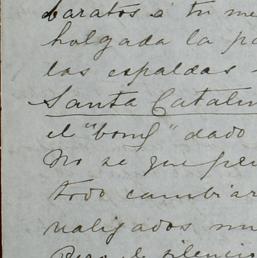 baratos á tu me
holgada la pa
las espaldas
Santa Catalin
el "bong" dado
No se que pen
todo cambiar
naligados mu
Pero le silencio